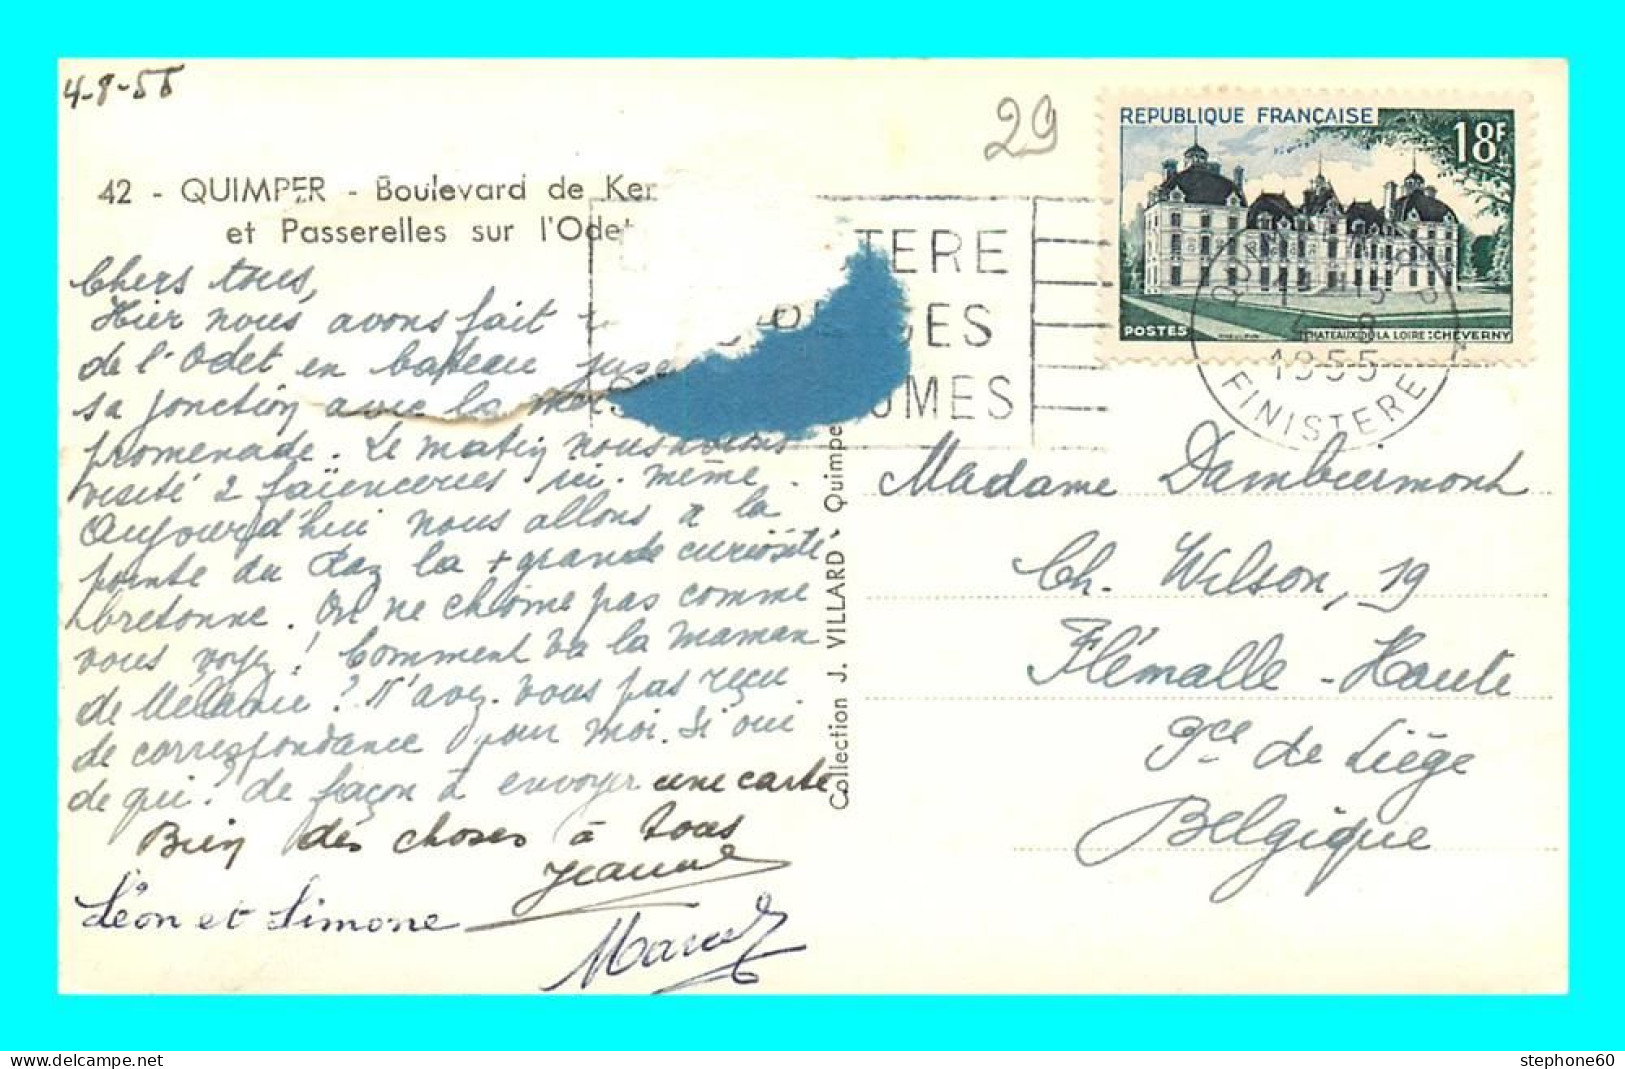 4-8-55
29
42 - QUIMPER - Boulevard de Ker
et Passerelles sur l'Odet
Chers tous,
Hier nous avons fait
de l'Odet en bateau jusq
sa jonction avec la mer
promenade. Le matin nous avons
visité 2 faïenceries ici-même.
Aujourd'hui nous allons à la
pointe du Raz la + grande curiosité
bretonne. On ne chôme pas comme
vous voyez! Comment va la maman
de Mélanie? N'avez-vous pas reçu
de correspondance pour moi. Si oui
de qui? de façon à envoyer une carte
Bien des choses à tous
Jeanne
Léon et Simone
Marcel
Collection J. VILLARD - Quimpe
TERE
GES
UMES
REPUBLIQUE FRANÇAISE
18F
POSTES
CHATEAUX DE LA LOIRE: CHEVERNY
1955
FINISTERE
Madame Dambiermont
Ch. Wilson, 19
Flémalle-Haute
Pce de Liège
Belgique
stephone60